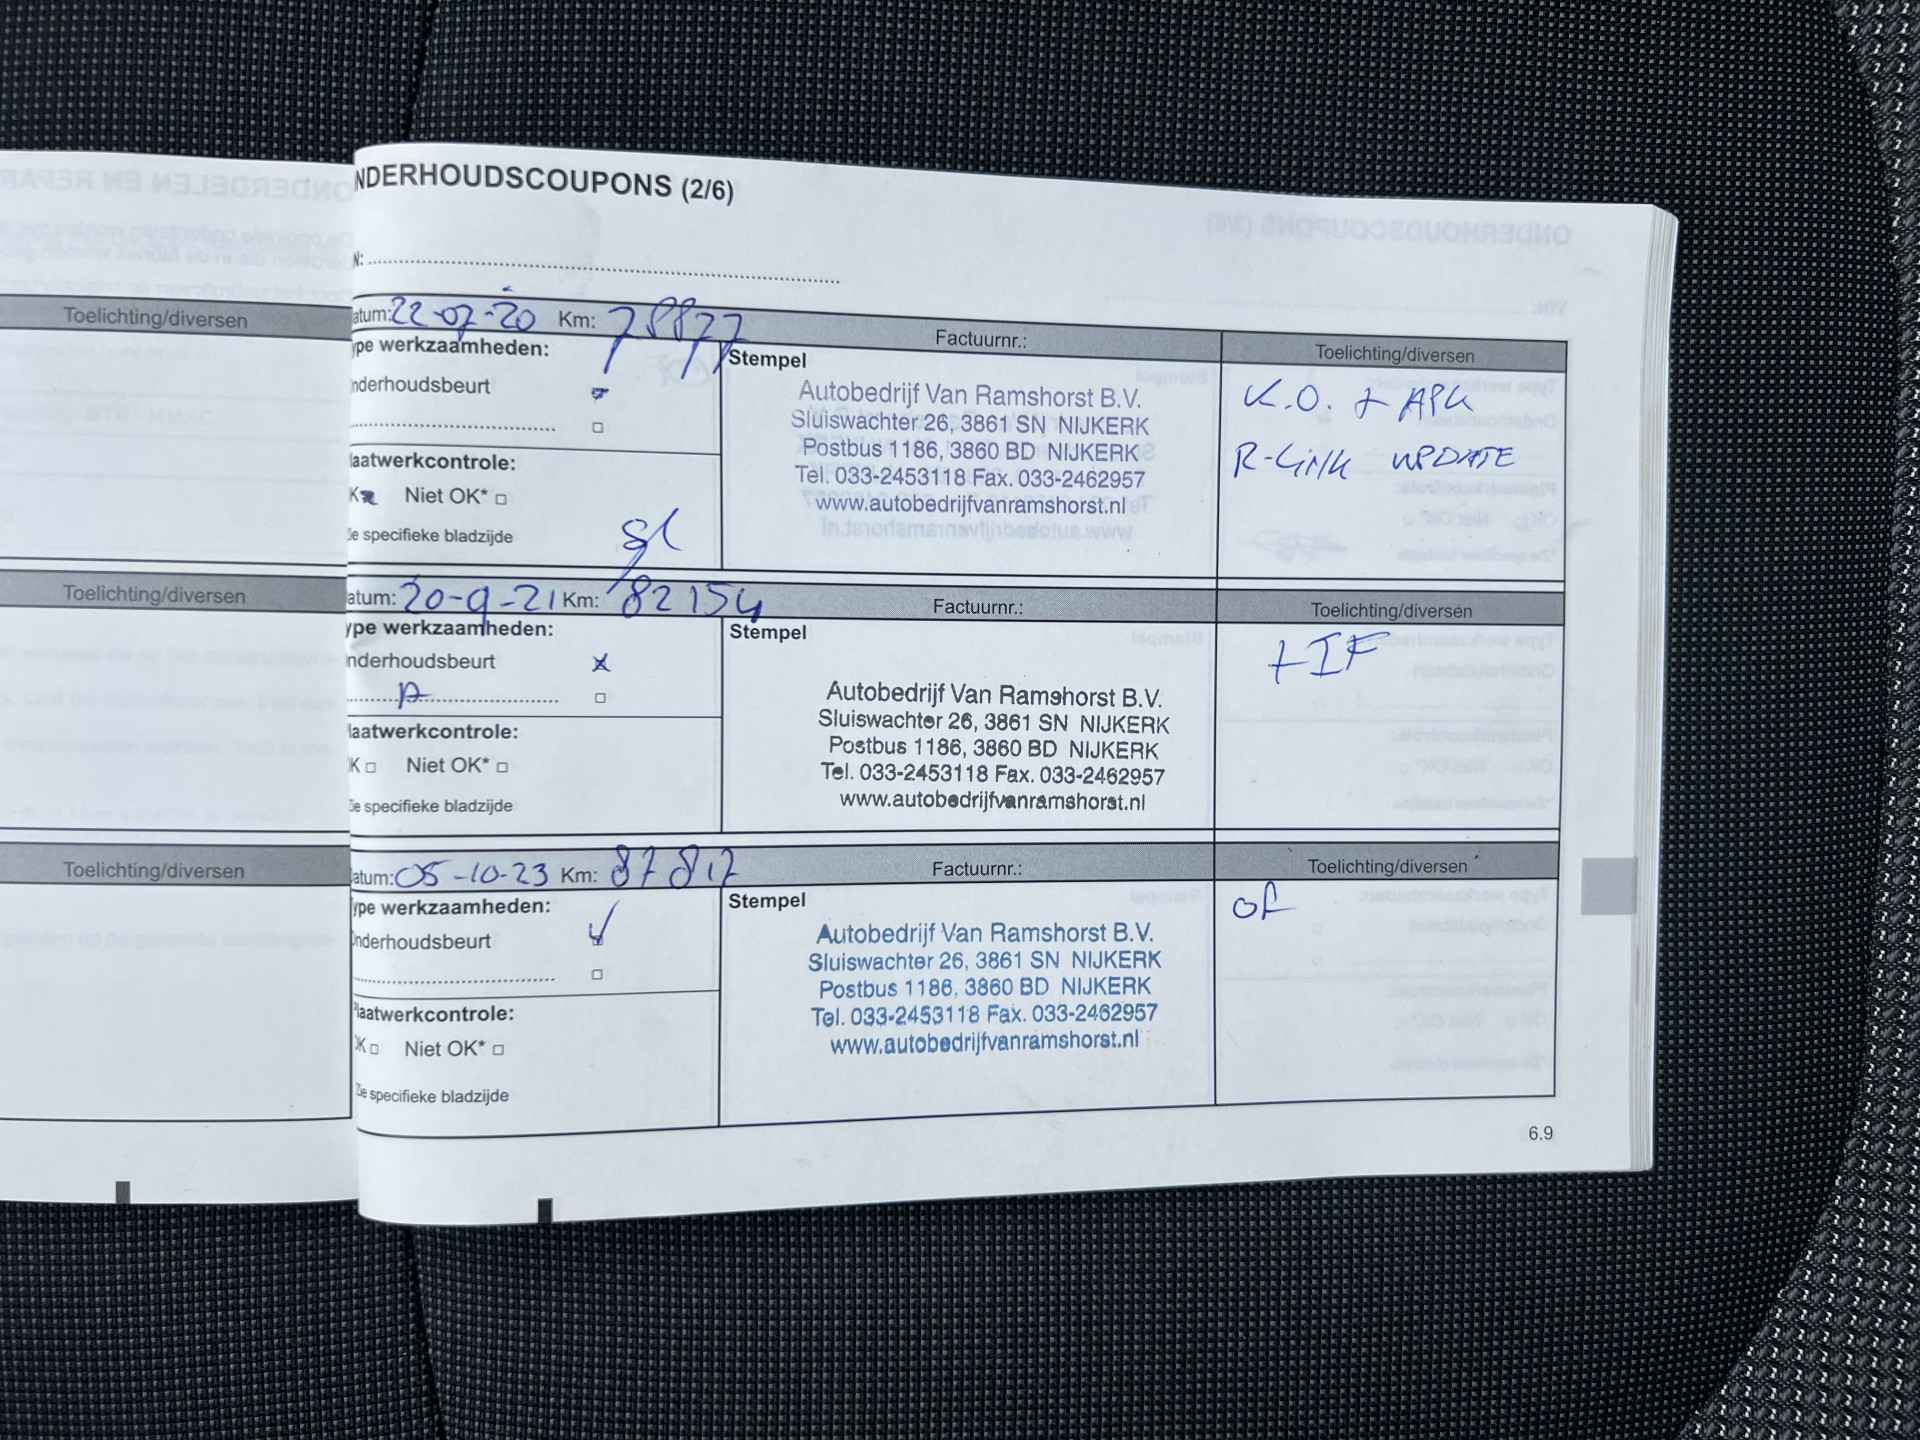 Toelichting/diversen
Toelichting/diversen
Toelichting/diversen
NDERHOUDSCOUPONS (2/6)
N:
atum: 22-07-20 Km: 78877 Factuurnr.: Toelichting/diversen
ype werkzaamheden: Stempel
nderhoudsbeurt
Autobedrijf Van Ramshorst B.V.
Sluiswachter 26, 3861 SN NIJKERK
Postbus 1186, 3860 BD NIJKERK
Tel. 033-2453118 Fax. 033-2462957
www.autobedrijfvanramshorst.nl
K.O. + APK
R-LINK UPDATE
laatwerkcontrole:
K Niet OK*
ie specifieke bladzijde
atum: 20-9-21 Km: 82154 Factuurnr.: Toelichting/diversen
ype werkzaamheden: Stempel
nderhoudsbeurt
A
Autobedrijf Van Ramshorst B.V.
Sluiswachter 26, 3861 SN NIJKERK
Postbus 1186, 3860 BD NIJKERK
Tel. 033-2453118 Fax. 033-2462957
www.autobedrijfvanramshorst.nl
+IF
laatwerkcontrole:
K Niet OK*
ie specifieke bladzijde
atum: 05-10-23 Km: 87817 Factuurnr.: Toelichting/diversen
ype werkzaamheden: Stempel
Onderhoudsbeurt
Autobedrijf Van Ramshorst B.V.
Sluiswachter 26, 3861 SN NIJKERK
Postbus 1186, 3860 BD NIJKERK
Tel. 033-2453118 Fax. 033-2462957
www.autobedrijfvanramshorst.nl
Plaatwerkcontrole:
OK Niet OK*
Zie specifieke bladzijde
6.9